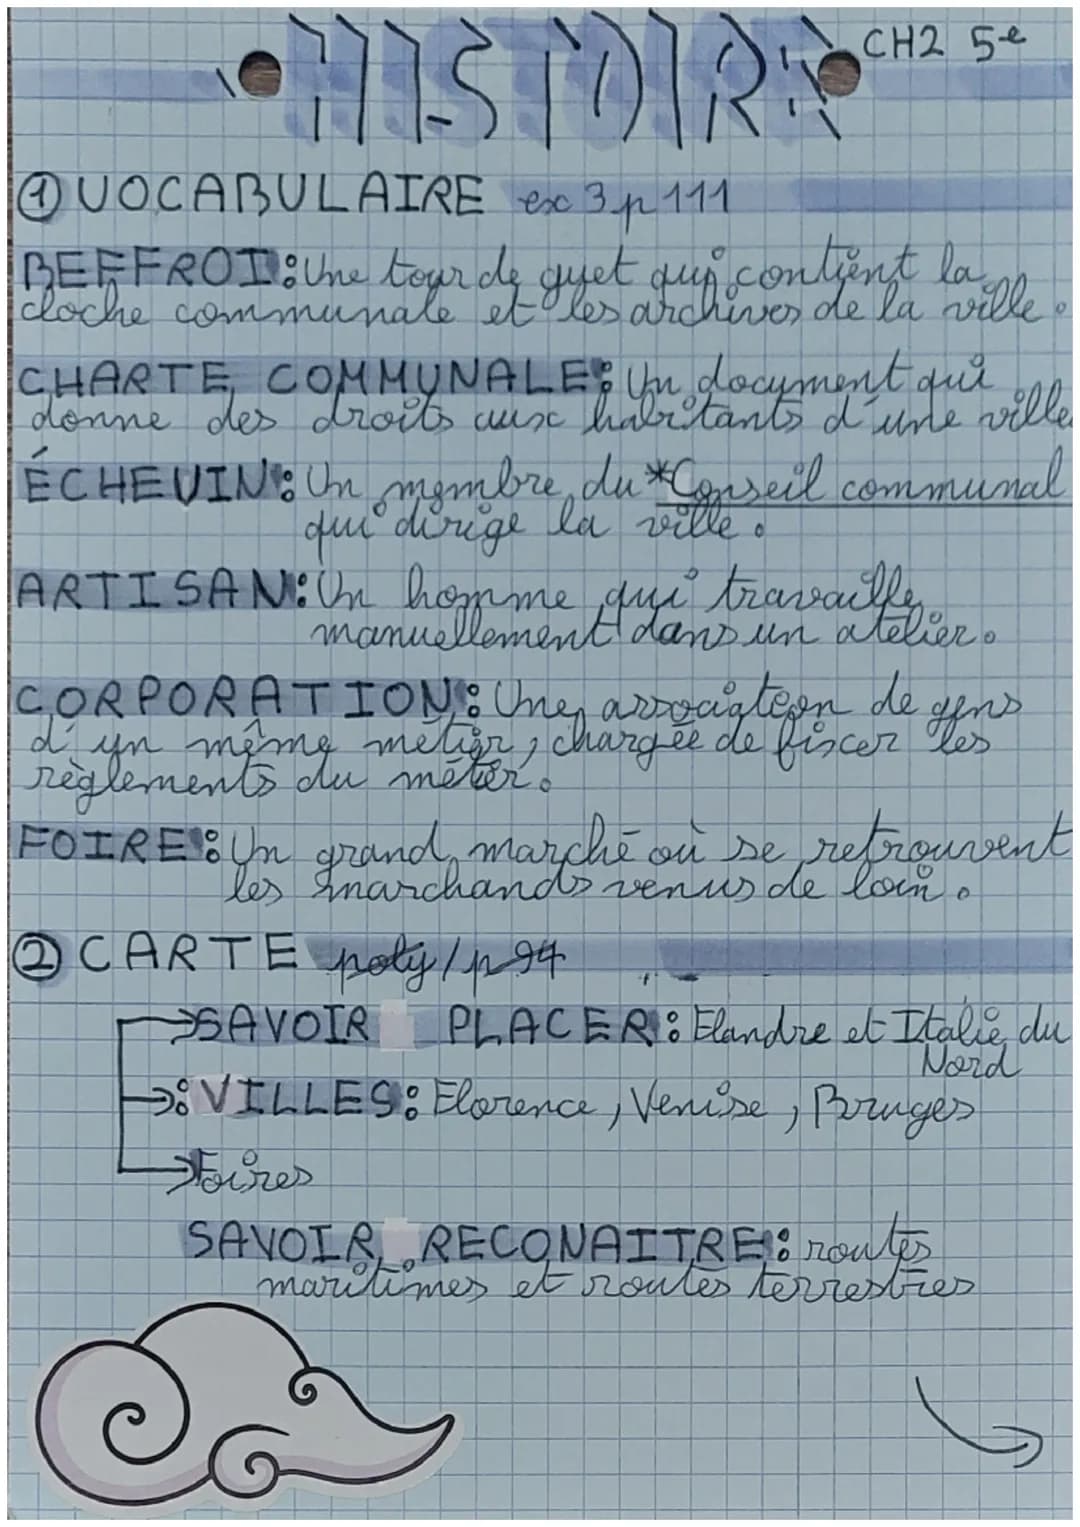 HISTOIRE CH2 5e
① VOCABULAIRE ex 3 p 111
BEFFROI : Une tour de guet qui contient la
cloche communale et les archives de la ville.
CHARTE COMMUNALE : Un document qui
donne des droits aux habitants d'une ville.
ÉCHEVIN : Un membre du *Conseil communal
qui dirige la ville.
ARTISAN : Un homme qui travaille
manuellement dans un atelier.
CORPORATION : Une association de gens
d'un même métier, chargée de fixer les
règlements du métier.
FOIRE : Un grand marché où se retrouvent
les marchands venus de loin.
② CARTE poly/p94
→SAVOIR PLACER : Flandre et Italie du
Nord
→: VILLES : Florence, Venise, Bruges
→Foires
SAVOIR RECONAITRE : routes
maritimes et routes terrestres